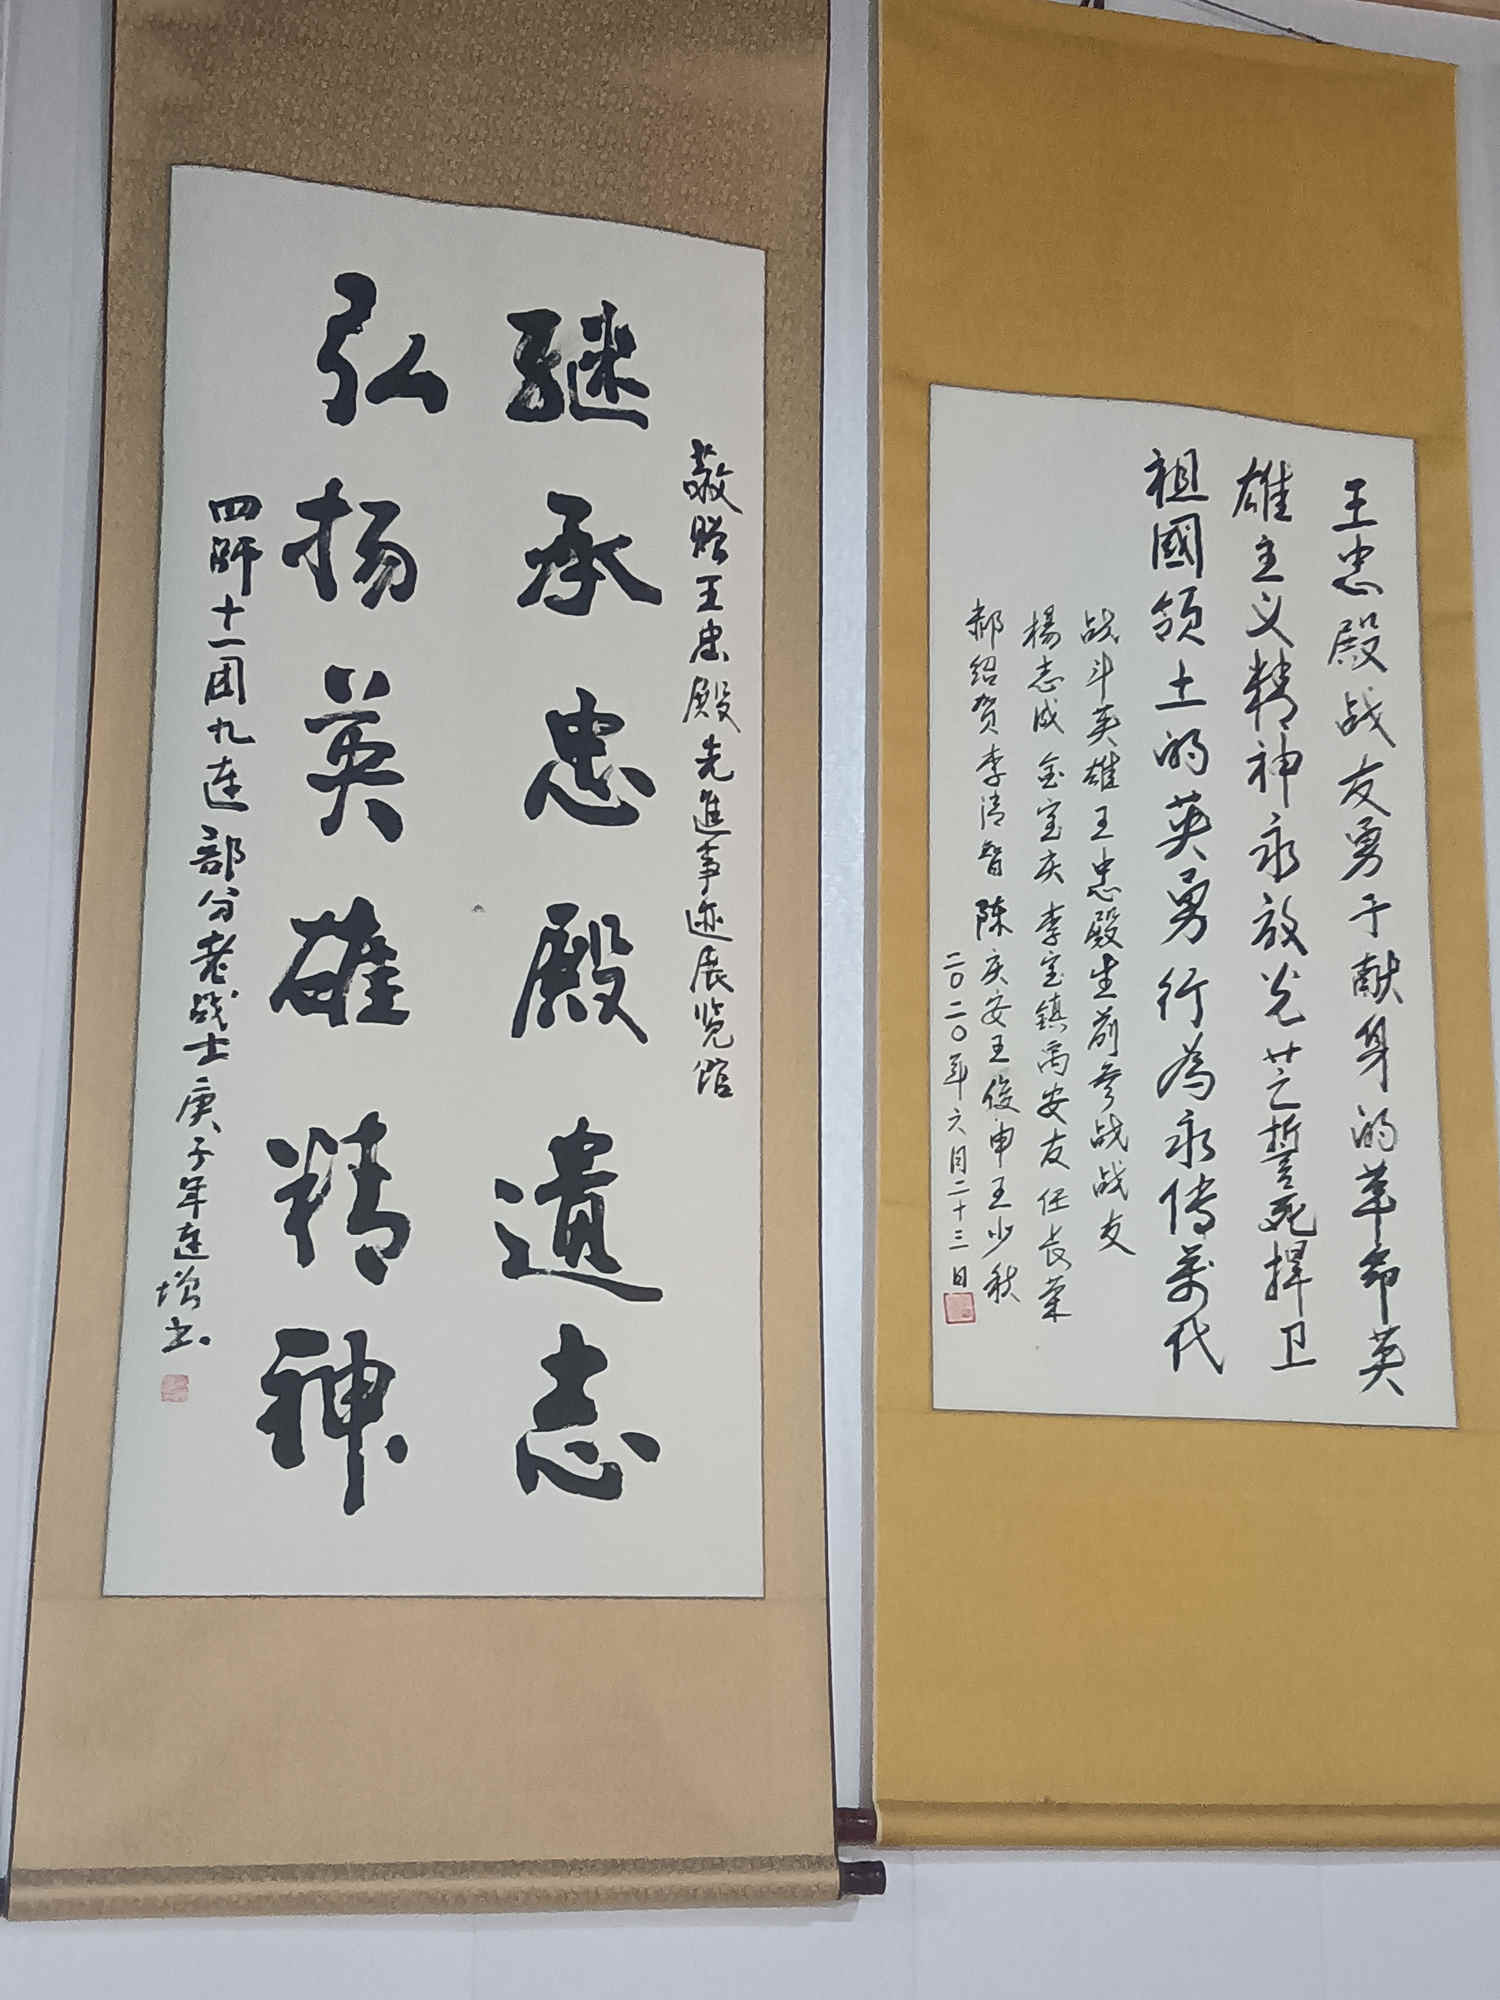 敬赠王忠殿先進事迹展览馆
継承忠殿遺志
弘扬英雄精神
四师十一团九连部分老战士庚子年连增书
王忠殿战友勇于献身的革命英
雄主义精神永放光芒誓死捍卫
祖國領土的英勇行為永傳萬代
战斗英雄王忠殿生前参战战友
楊志成金宝庆李宝鎮高安友任長荣
郝绍贺李清智陈庆安王俊申王少秋
二〇二〇年六月二十三日